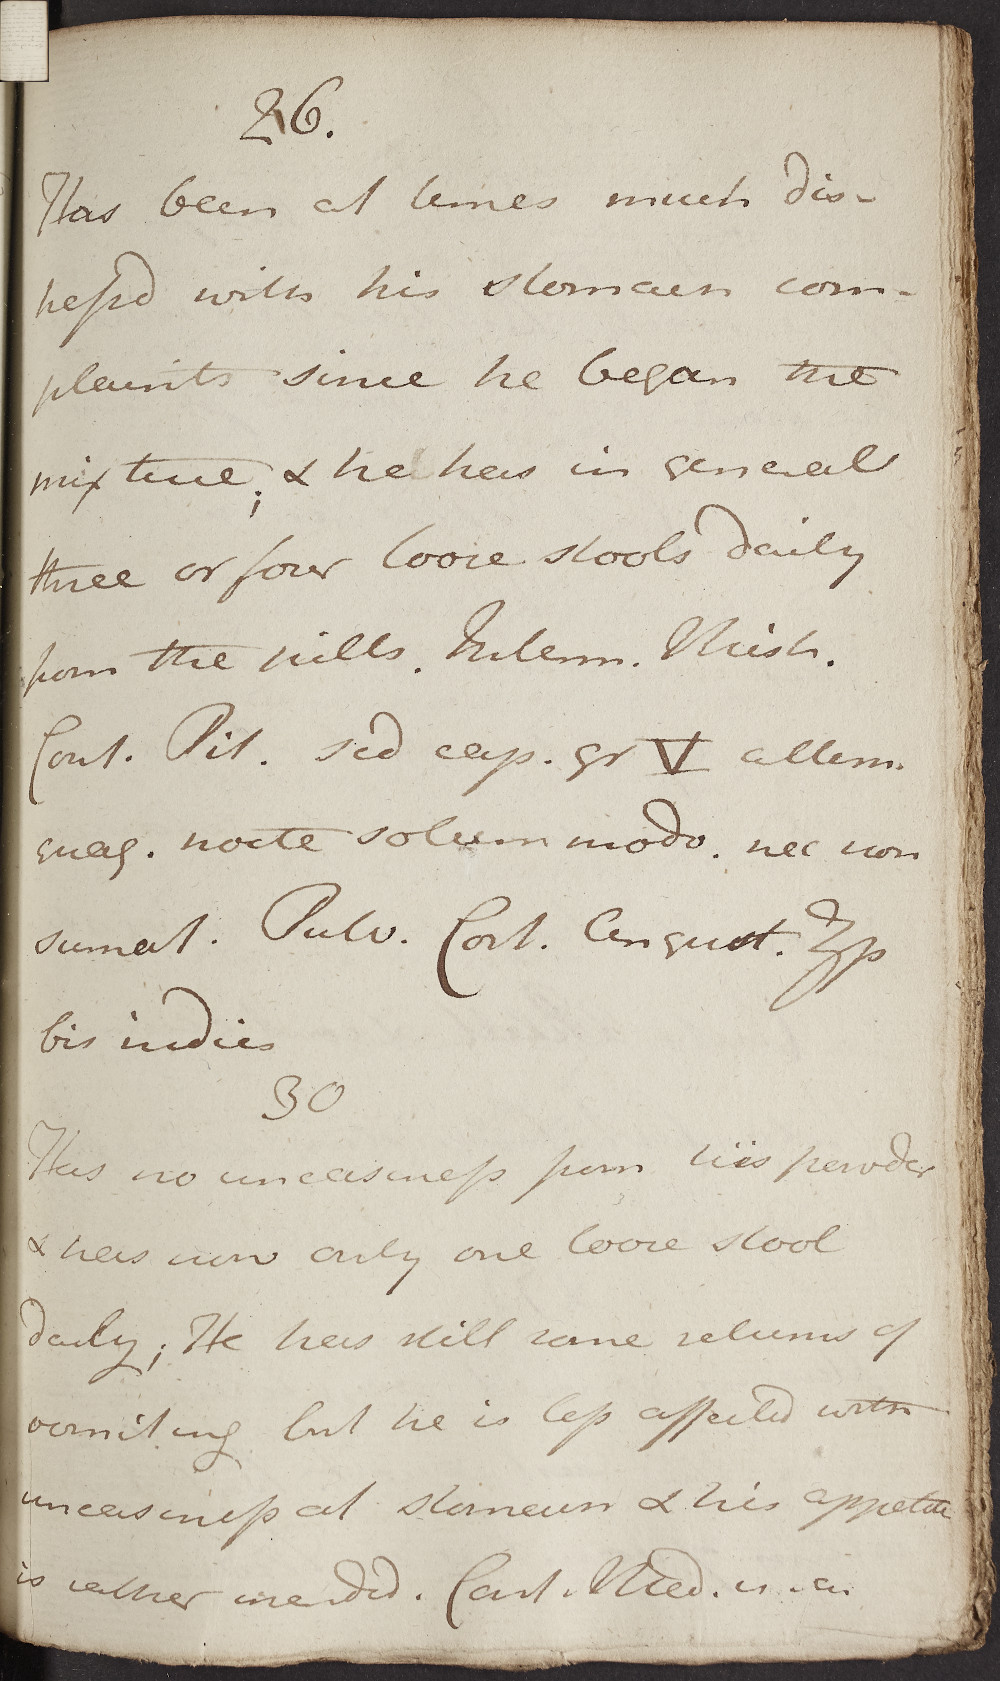 26.
Has been at times much dis-
tress'd with his stomach com-
plaints since he began the
mixture; & he has in general
three or four loose stools daily
from the pills. Interm. Mist.
Cont. Pil. sed cap. gr V altern.
quaq. nocte solummodo. nec non
sumat. Pulv. Cort. Angust. ʒſs
bis indies
30
Has no uneasiness from his powder
& has now only one loose stool
daily; He has still some returns of
vomiting but he is less affected with
uneasiness at stomach & his appetite
is rather mended. Cont. Med. u. a.